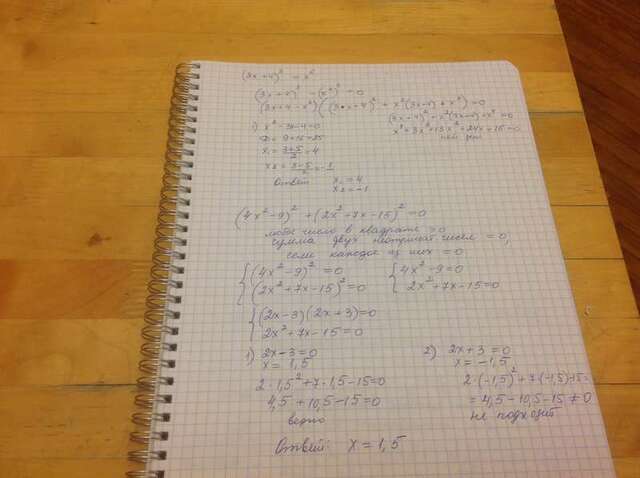 (3x+4)² = x⁶
(3x+4)² - (x²)³ = 0
(3x+4-x²)((3x+4)² + x²(3x+4) + x⁴) = 0
(3x+4)² + x²(3x+4) + x⁴ = 0
x⁴+3x³+13x²+24x+16=0
1) x²-3x-4=0
D = 9+16=25
x₁ = 3+5/2 = 4
x₂ = 3-5/2 = -1
Ответ x₁ = 4
x₂ = -1
(4x²-9)² + (2x²+7x-15)² = 0
любое число в квадрате
сумма двух неотрицат. чисел = 0,
если каждое из них = 0
{(4x²-9)² = 0 {4x²-9=0
(2x²+7x-15)² = 0 2x²+7x-15=0
{(2x-3)(2x+3)=0
2x²+7x-15=0
1) 2x-3=0
x = 1,5
2·1,5²+7·1,5-15=0
4,5+10,5-15=0
верно
2) 2x+3=0
x = -1,5
2·(-1,5)²+7·(-1,5)-15=
= 4,5-10,5-15≠0
не подходит
Ответ: x = 1,5